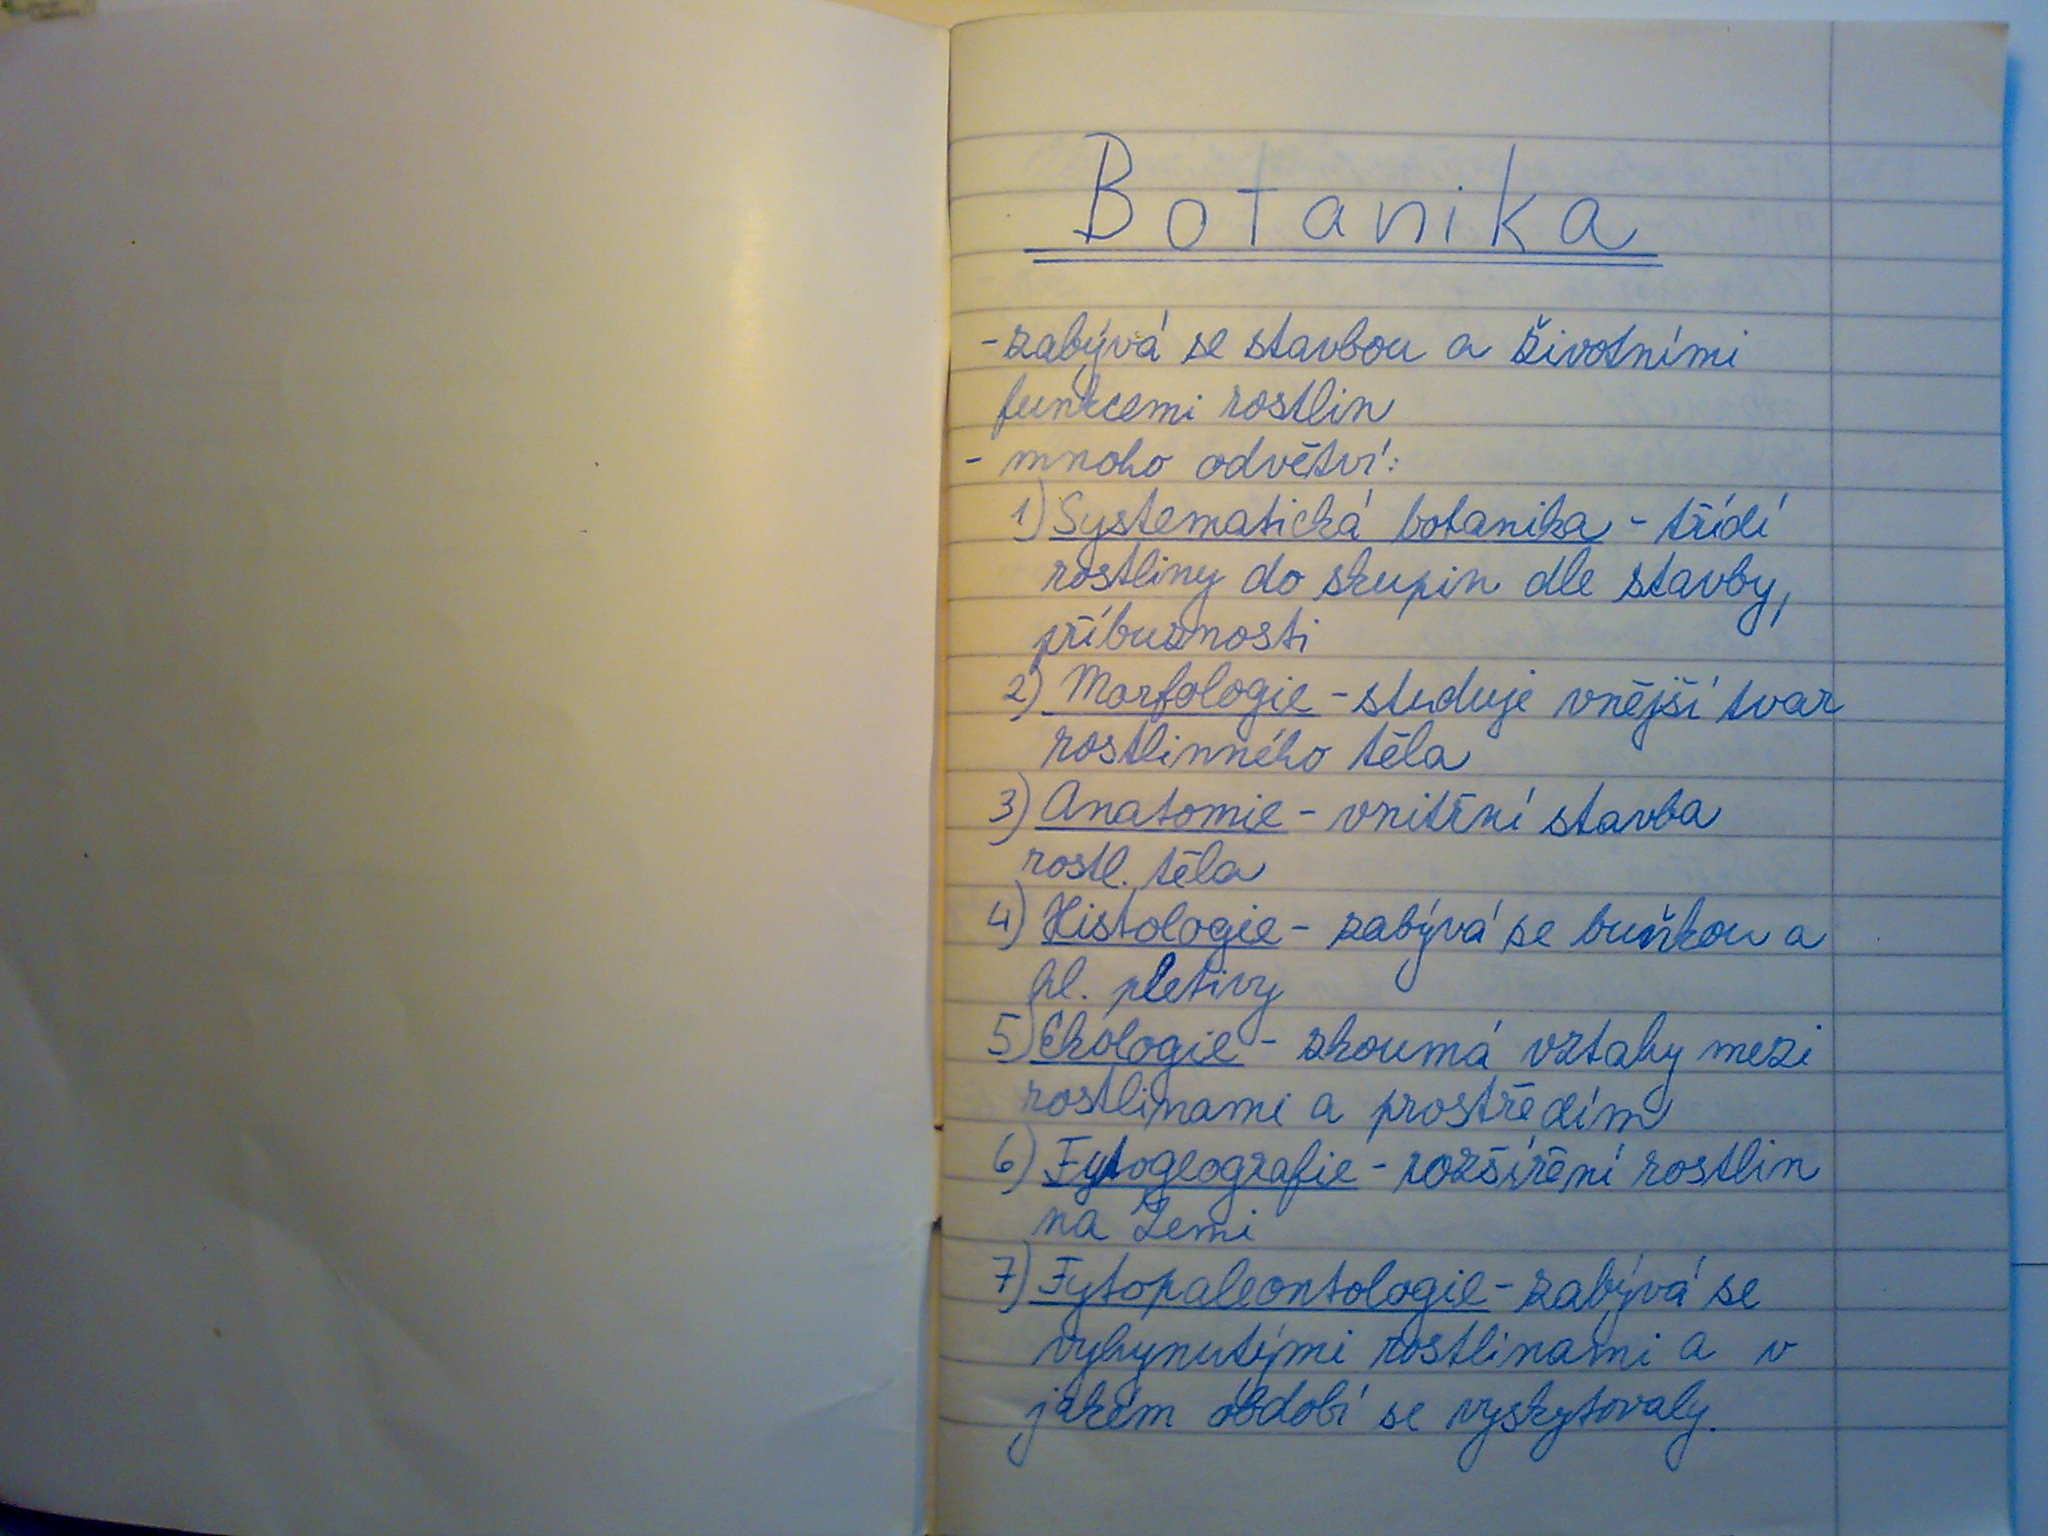 Botanika
- zabývá se stavbou a životními
funkcemi rostlin
- mnoho odvětví:
1) Systematická botanika - třídí
rostliny do skupin dle stavby,
příbuznosti
2) Morfologie - studuje vnější tvar
rostlinného těla
3) Anatomie - vnitřní stavba
rostl. těla
4) Histologie - zabývá se buňkou a
hl. pletivy
5) Ekologie - zkoumá vztahy mezi
rostlinami a prostředím
6) Fytogeografie - rozšíření rostlin
na Zemi
7) Fytopaleontologie - zabývá se
vyhynutými rostlinami a v
jakém období se vyskytovaly.